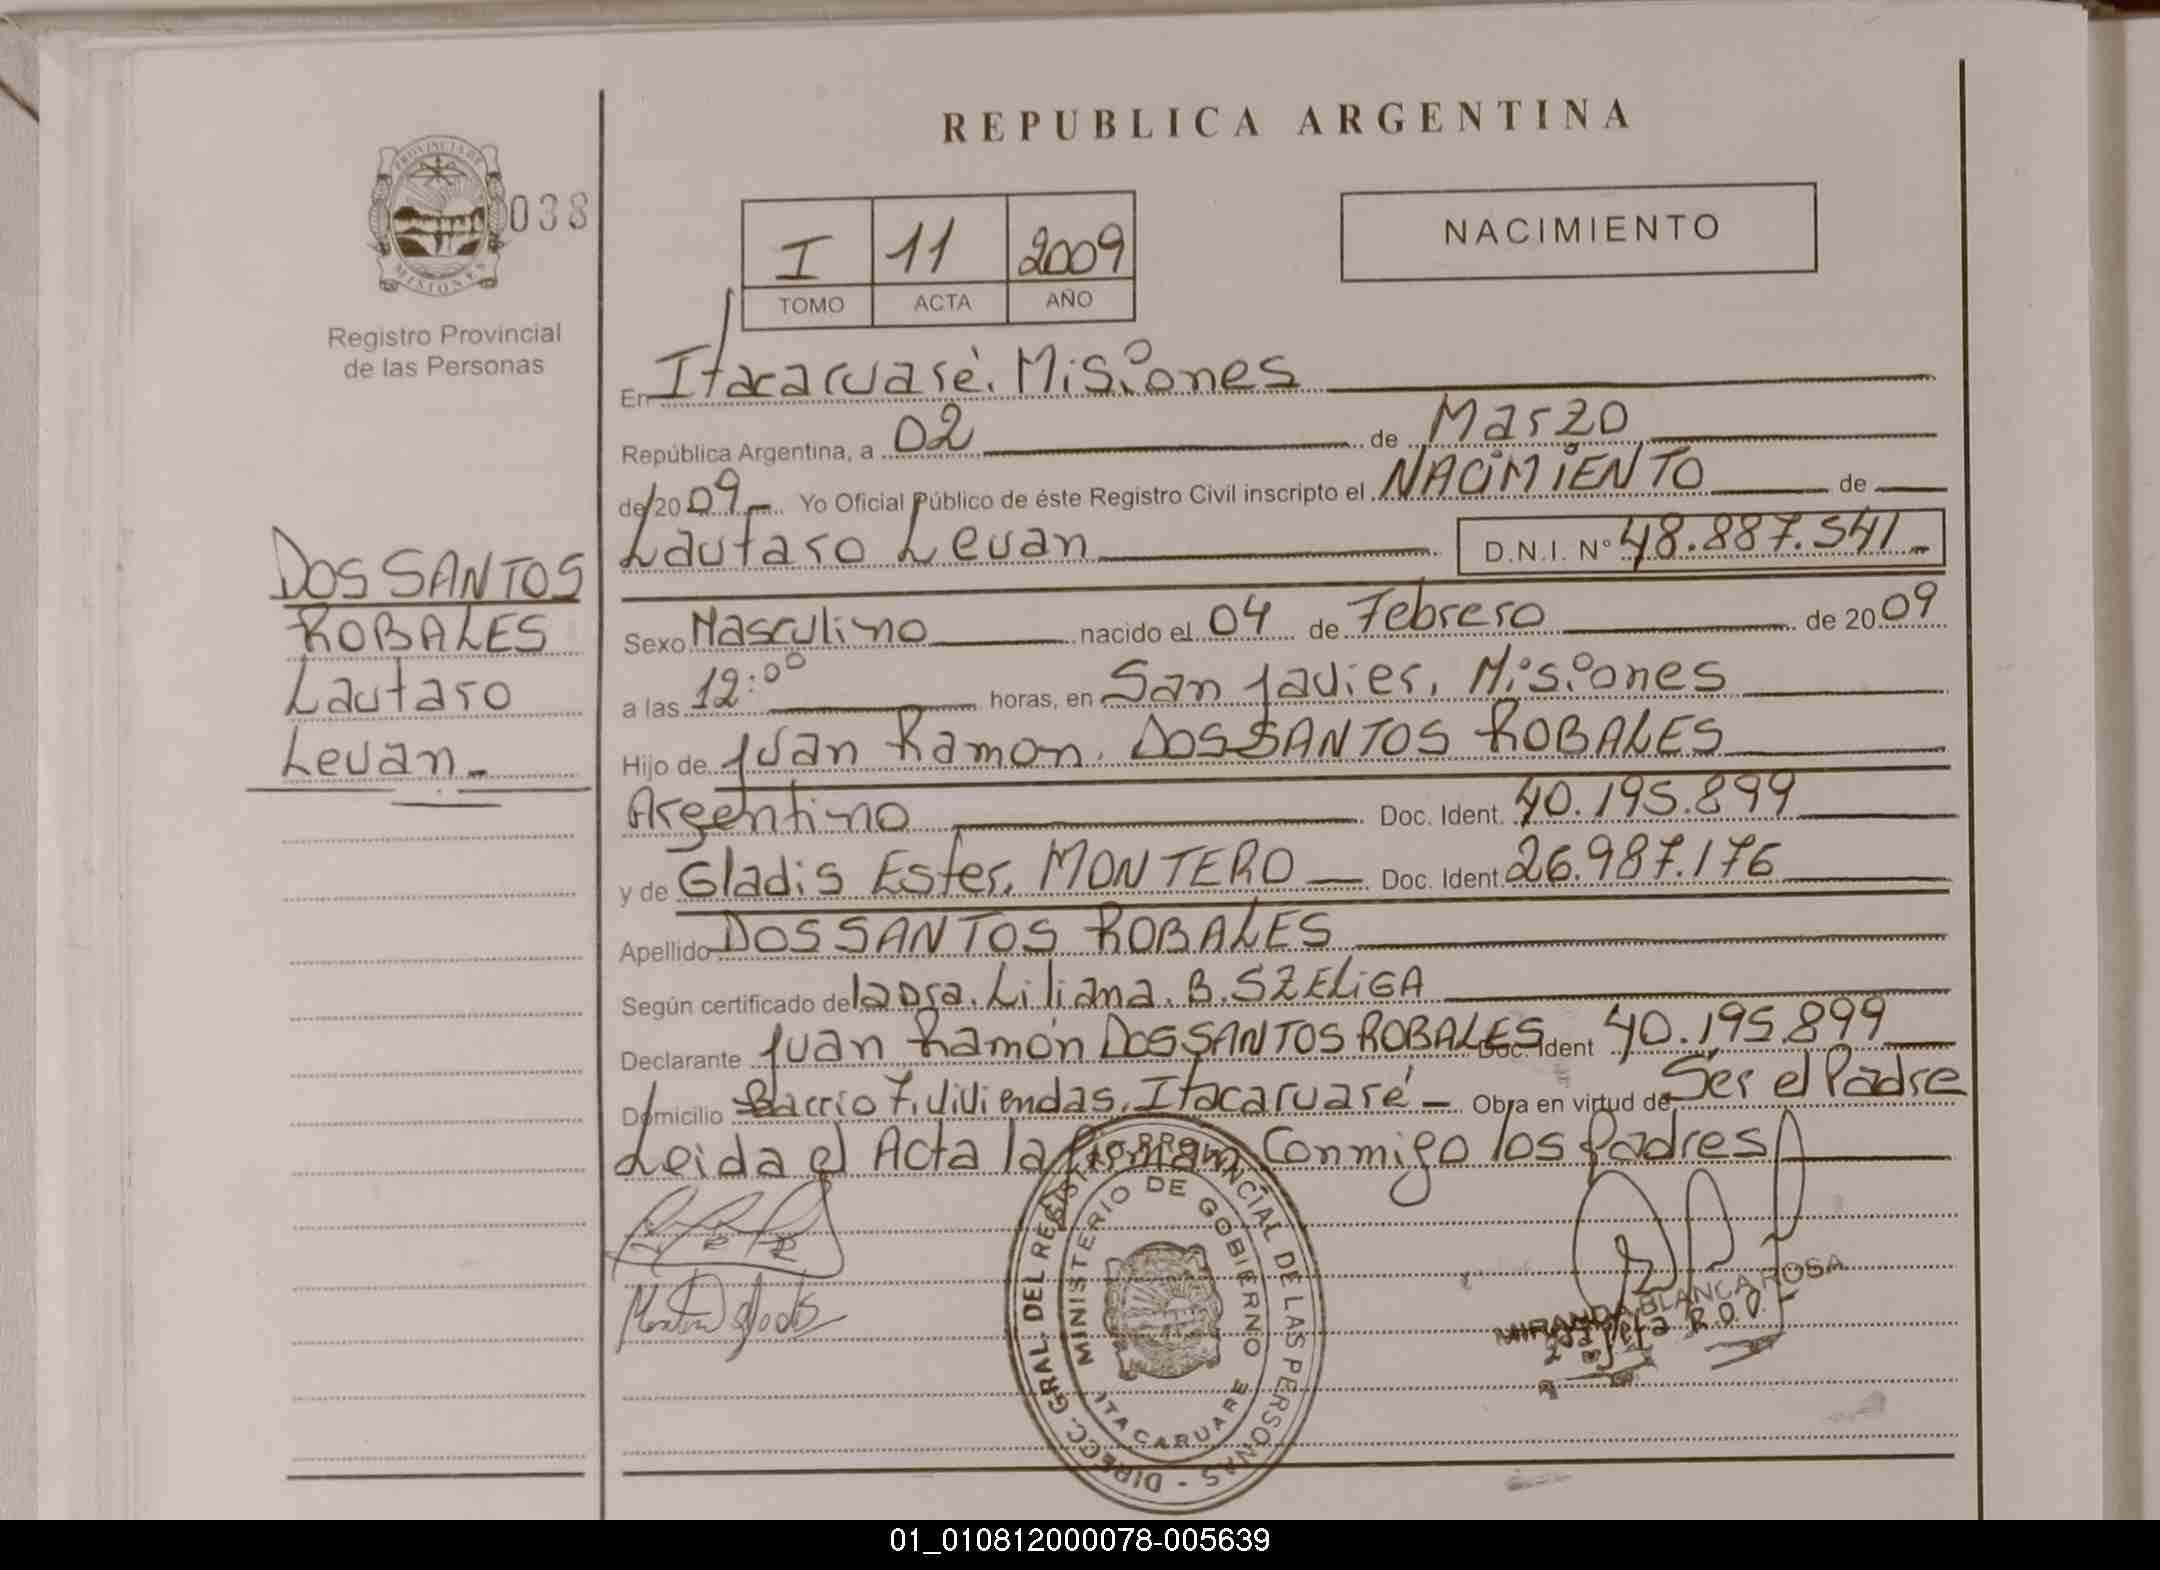 REPUBLICA ARGENTINA
PROVINCIA DE
MISIONES
038
Registro Provincial
de las Personas
I 11 2009
TOMO ACTA AÑO
NACIMIENTO
DOS SANTOS
ROBALES
Lautaro
Levan
En Itacaruaré. Misiones
República Argentina, a 02 de Marzo
de 2009 Yo Oficial Público de éste Registro Civil inscripto el NACIMIENTO de
Lautaro Levan D.N.I. Nº 48.887.541
Sexo Masculino nacido el 04 de Febrero de 2009
a las 12:00 horas, en San Javier, Misiones
Hijo de Juan Ramon. DOS SANTOS ROBALES
Argentino Doc. Ident. 40.195.899
y de Gladis Ester. MONTERO Doc. Ident. 26.987.176
Apellido DOS SANTOS ROBALES
Según certificado de la Dra. Liliana. B. SZELIGA
Declarante Juan Ramón DOS SANTOS ROBALES Doc. Ident 40.195.899
Domicilio Barrio 7. Viviendas. Itacaruaré Obra en virtud de Ser el Padre
Leida el Acta la Firman Conmigo los padres
DIRECC. GRAL. DEL REGISTRO PROVINCIAL DE LAS PERSONAS
MINISTERIO DE GOBIERNO
ITACARUARE
MIRANDA BLANCA ROSA
01_010812000078-005639